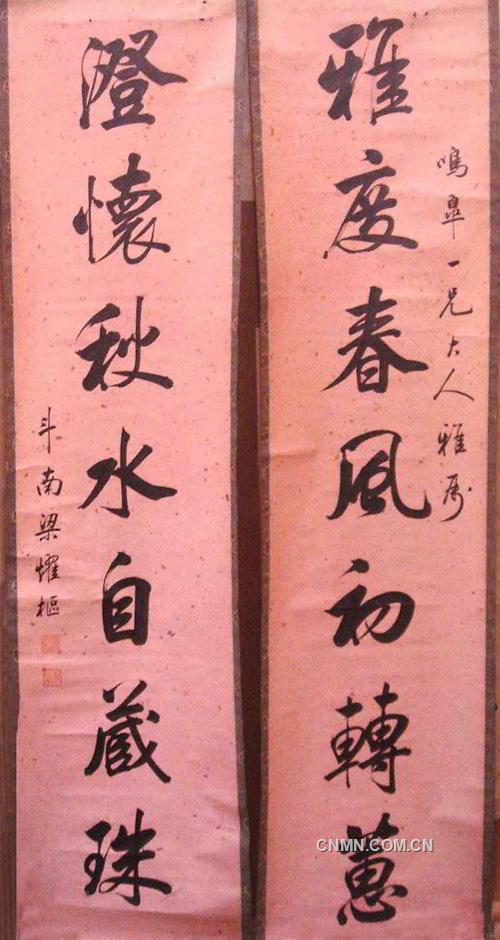 鳴臯一兄大人雅属
雅度春風初轉蕙
澄懷秋水自蔵珠
斗南梁燿樞
CNMN.COM.CN